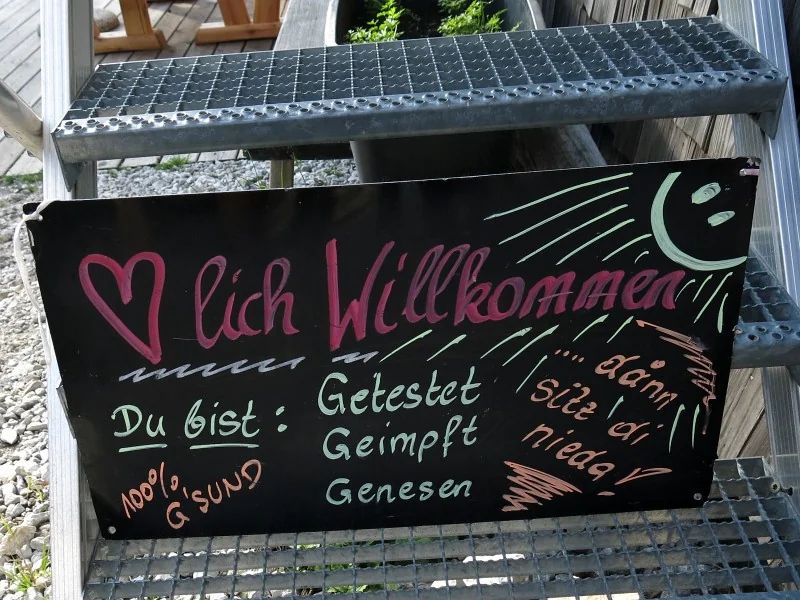 ♥lich Willkommen
Du bist :
Getestet
Geimpft
Genesen
100% G'SUND
.... dånn
sitz di
nieda!